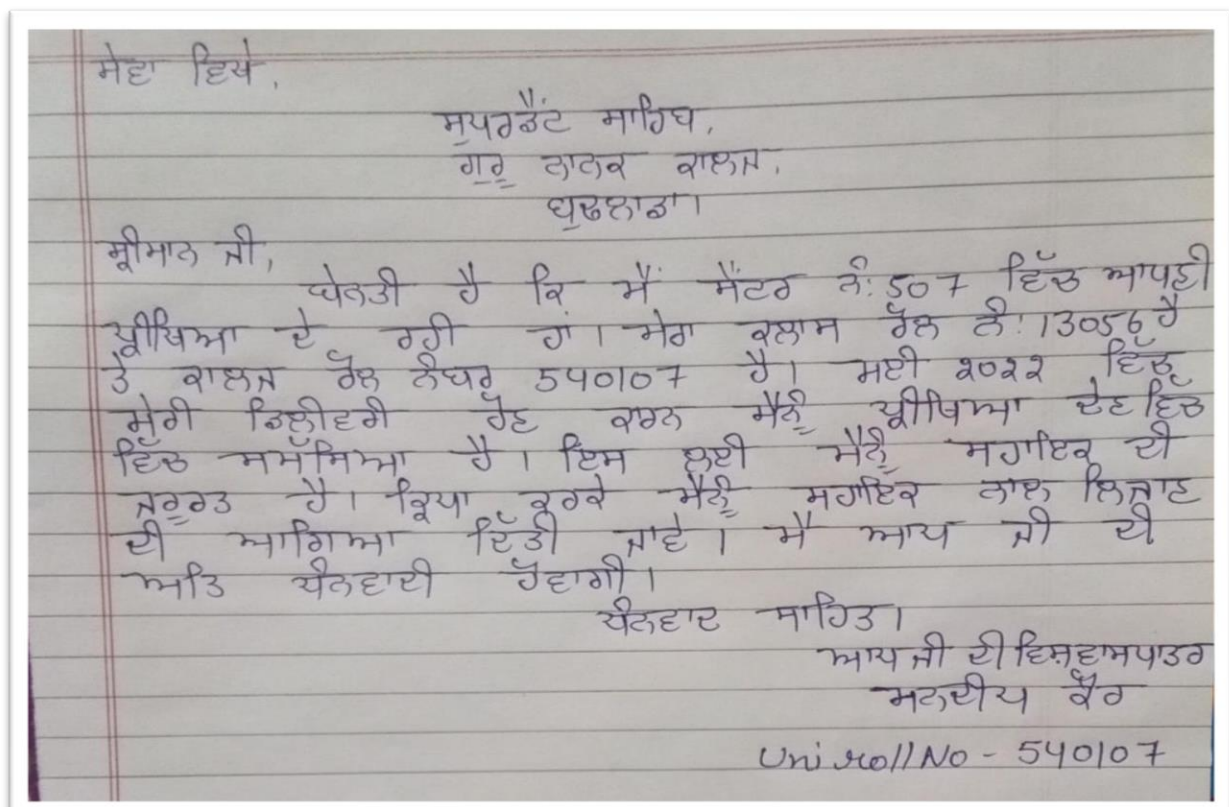 ਸੇਵਾ ਵਿਖੇ,
ਸੁਪਰਡੈਂਟ ਸਾਹਿਬ,
ਗੁਰੂ ਨਾਨਕ ਕਾਲਜ,
ਬੁਢਲਾਡਾ।
ਸ੍ਰੀਮਾਨ ਜੀ,
ਬੇਨਤੀ ਹੈ ਕਿ ਮੈਂ ਸੈਂਟਰ ਨੰ: 507 ਵਿੱਚ ਆਪਣੀ
ਪ੍ਰੀਖਿਆ ਦੇ ਰਹੀ ਹਾਂ। ਮੇਰਾ ਕਲਾਸ ਰੋਲ ਨੰ: 13056 ਹੈ
ਤੇ ਕਾਲਜ ਰੋਲ ਨੰਬਰ 540107 ਹੈ। ਮਈ ੨੦੨੨ ਵਿੱਚ
ਮੇਰੀ ਡਿਲੀਵਰੀ ਹੋਣ ਕਾਰਨ ਮੈਨੂੰ ਪ੍ਰੀਖਿਆ ਦੇਣ ਵਿੱਚ
ਵਿੱਚ ਸਮੱਸਿਆ ਹੈ। ਇਸ ਲਈ ਮੈਨੂੰ ਸਹਾਇਕ ਦੀ
ਜਰੂਰਤ ਹੈ। ਕ੍ਰਿਪਾ ਕਰਕੇ ਮੈਨੂੰ ਸਹਾਇਕ ਨਾਲ ਲਿਜਾਣ
ਦੀ ਆਗਿਆ ਦਿੱਤੀ ਜਾਵੇ। ਮੈਂ ਆਪ ਜੀ ਦੀ
ਅਤਿ ਧੰਨਵਾਦੀ ਹੋਵਾਗੀ।
ਧੰਨਵਾਦ ਸਾਹਿਤ।
ਆਪ ਜੀ ਦੀ ਵਿਸ਼ਵਾਸਪਾਤਰ
ਮਨਦੀਪ ਕੌਰ
Uni roll No - 540107